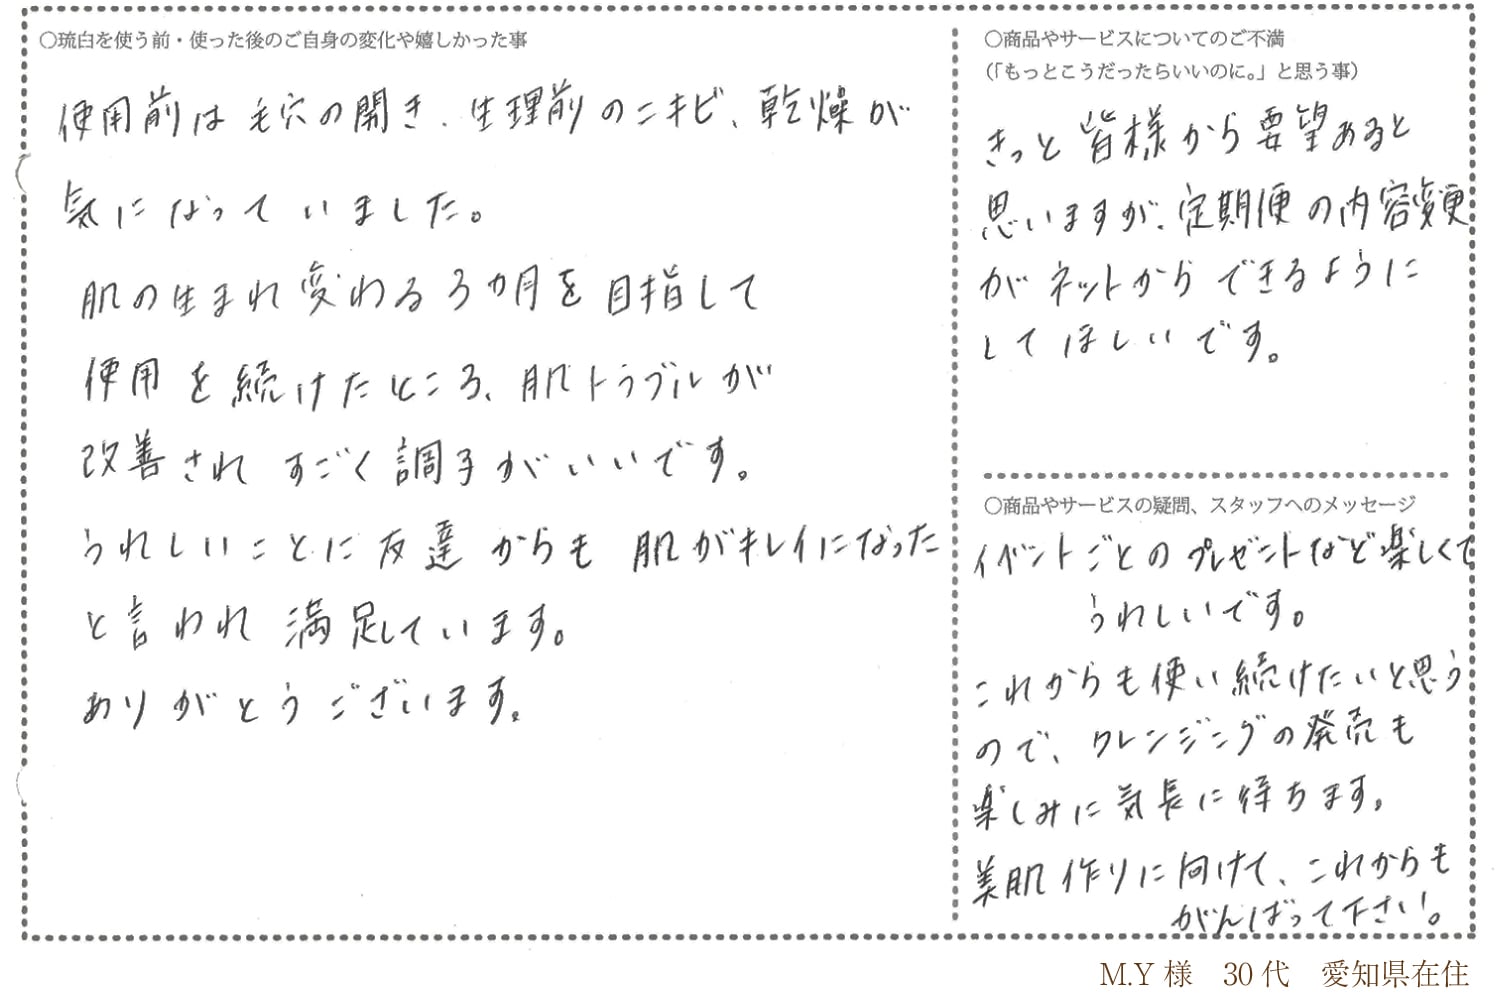 〇琉白を使う前・使った後のご自身の変化や嬉しかった事
使用前は毛穴の開き、生理前のニキビ、乾燥が
気になっていました。
肌の生まれ変わる3カ月を目指して
使用を続けたところ、肌トラブルが
改善されすごく調子がいいです。
うれしいことに友達からも肌がキレイになった
と言われ満足しています。
ありがとうございます。
〇商品やサービスについてのご不満
(「もっとこうだったらいいのに。」と思う事)
きっと皆様から要望あると
思いますが、定期便の内容変更
がネットからできるように
してほしいです。
〇商品やサービスの疑問、スタッフへのメッセージ
イベントごとのプレゼントなど楽しくて
うれしいです。
これからも使い続けたいと思う
ので、クレンジングの発売も
楽しみに気長に待ちます。
美肌作りに向けて、これからも
がんばって下さい。
M.Y様 30代 愛知県在住